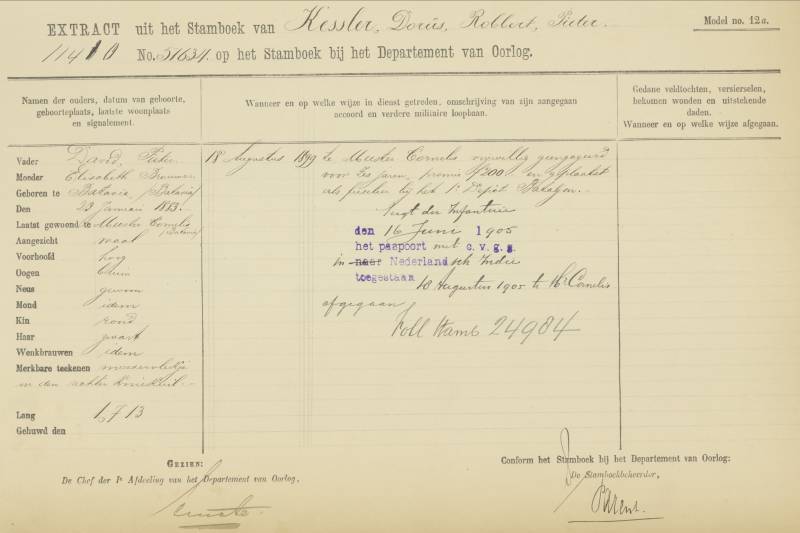 EXTRACT uit het Stamboek van Kessler, Dorús, Robbert, Pieter.
Model no. 12a.
11410 No. 51634. op het Stamboek bij het Departement van Oorlog.
Namen der ouders, datum van geboorte, geboorteplaats, laatste woonplaats en signalement.
Wanneer en op welke wijze in dienst getreden, omschrijving van zijn aangegaan accoord en verdere militaire loopbaan.
Gedane veldtochten, versierselen, bekomen wonden en uitstekende daden.
Wanneer en op welke wijze afgegaan.
Vader David, Pieter
Moeder Elisabeth
Geboren te Batavia (Batavia)
Den 23 Januari 1883.
Laatst gewoond te Meester Cornelis
(Batavia)
Aangezicht ovaal
Voorhoofd hoog
Oogen bruin
Neus gewoon
Mond idem
Kin rond
Haar zwart
Wenkbrauwen idem
Merkbare teekenen moedervlekje
in den rechter
Lang 1,713
Gehuwd den
18 Augustus 1899 te Meester Cornelis vrijwillig geengageerd
voor zes jaren, premie ƒ200 en geplaatst
als fuselier bij het 1e Depôt Bataljon.
der Infanterie
den 16 Juni 1905
het paspoort met c.v.g.g.
in naar Nederlandsch Indie
toegestaan
18 Augustus 1905 te Mr Cornelis
afgegaan
voll Stamb 24984
GEZIEN:
De Chef der Ie Afdeeling van het Departement van Oorlog,
Conform het Stamboek bij het Departement van Oorlog:
De Stamboekbeheerder,